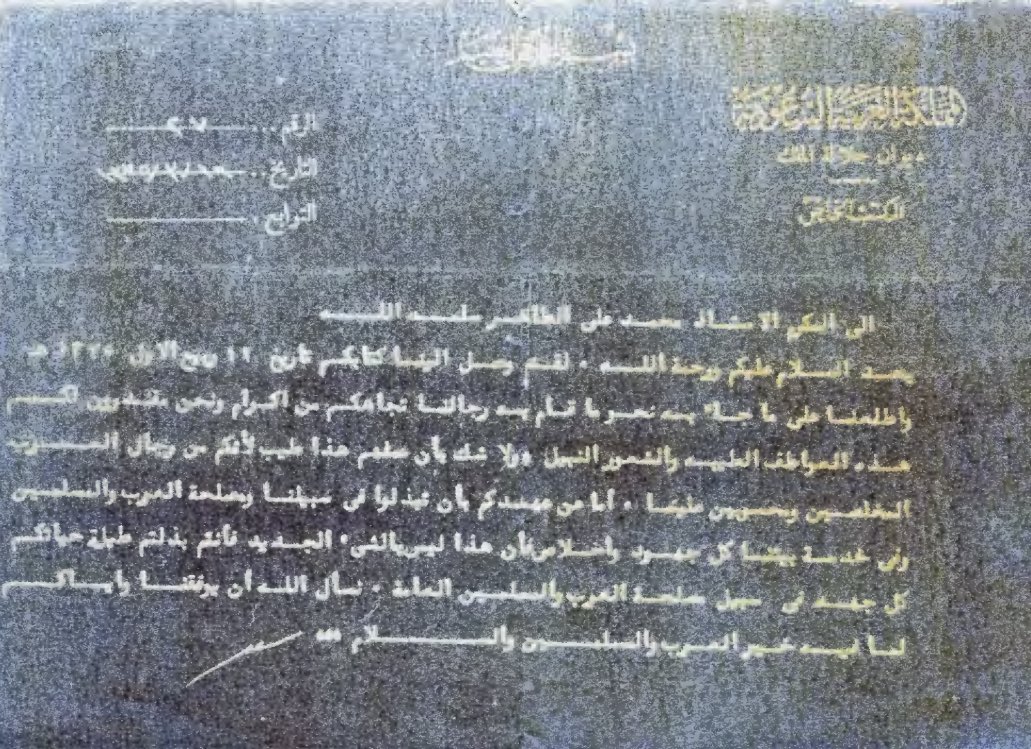 بسم الله الرحمن الرحيم
المملكة العربية السعودية
ديوان جلالة الملك
المكتب الخاص
الرقم
التاريخ
التوابع
الى المكرم الاستاذ محمد على الطاهر سلمه اللـــه
بعد السلام عليكم ورحمة اللـــه ٠ لقد وصل الينا كتابكم تاريخ ١٢ ربيع الاول ١٣٧٥ هـ
واطلعنا على ما جاء به نحو ما قام به رجالنا تجاهكم من اكرام ونحن مقدرون لكـــم
هذه العواطف الطيبه والشعور النبيل ولا شك بأن عملهم هذا طيب لأنكم من رجال العـــرب
المخلصين ويعـزون علينا ٠ أما عن عهدكم بأن تبذلوا فى سبيلنا ومصلحة العرب والمسلمين
وفى خدمة بيتنا كل جهود واخلاص فأن هذا ليس بالشىء الجديد فأنتم بذلتم طيلة حياتكم
كل جهد فى سبيل مصلحة العرب والمسلمين العامة ٠ نسأل الله أن يوفقنـا واياكـــم
لما فيه خير العرب والمسلمـــين والـــــــــلام